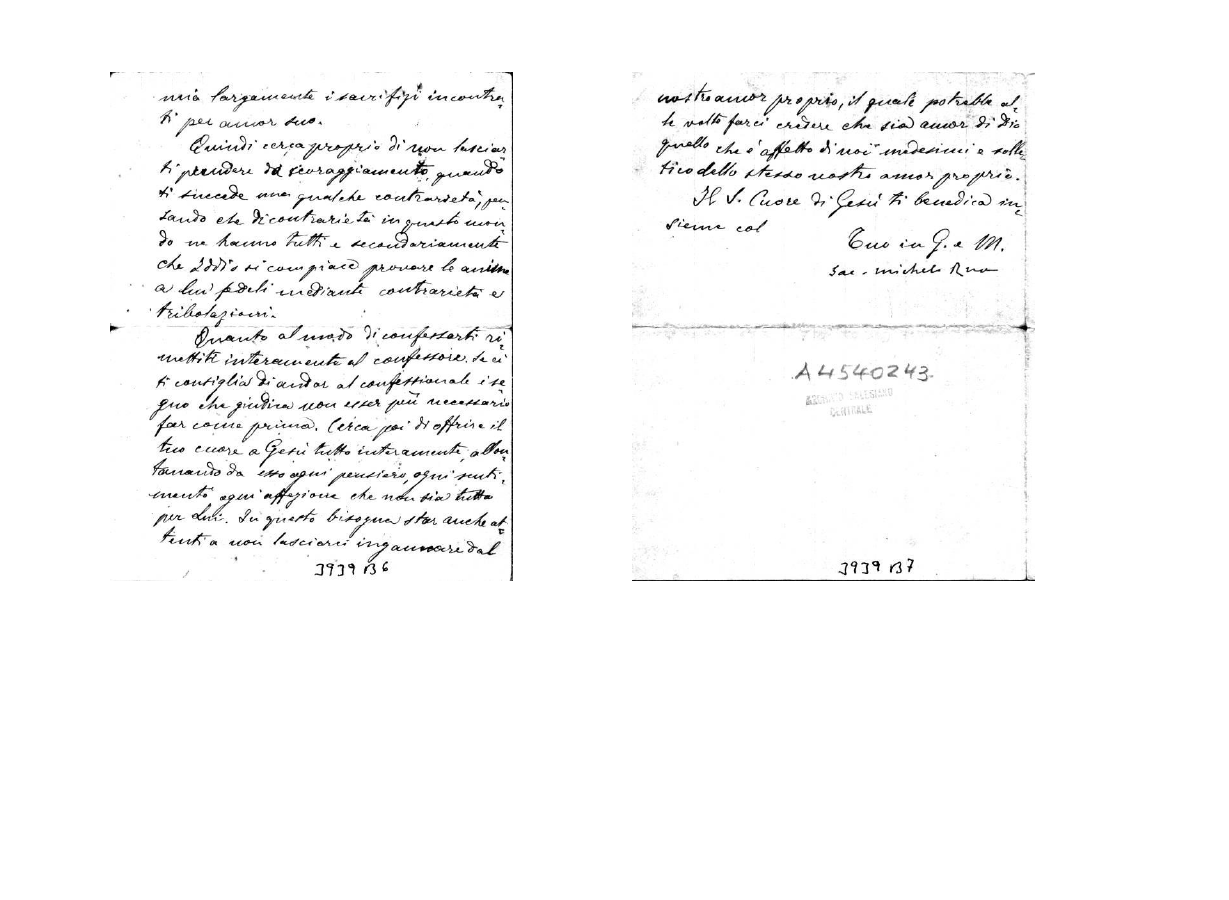 mia largamente i sacrifizi incontra=
ti per amor suo.
Quindi cerca proprio di non lasciar
ti prendere da scoraggiamento, quando
ti succede una qualche contrarietà, pen=
sando che di contrarietà in questo mon=
do ne hanno tutti e secondariamente
che Iddio si compiace provare le anime
a lui fedeli mediante contrarietà e
tribolazioni.
Quanto al modo di confessarti ri=
mettiti interamente al confessore. Se ei
ti consiglia di andar al confessionale è se
gno che giudica non esser più necessario
far come prima. Cerca poi di offrire il
tuo cuore a Gesù tutto interamente, allon=
tanando da esso ogni pensiero, ogni senti=
mento ogni affezione che non sia tutta
per Lui. In questo bisogna star anche at=
tenti a non lasciarci ingannare dal
3939 B6
nostro amor proprio, il quale potrebbe al=
le volte farci credere che sia amor di Dio
quello che è affetto di noi medesimi e solle=
tico dello stesso nostro amor proprio.
Il S. Cuore di Gesù ti benedica in=
sieme col
Tuo in G. e M.
Sac. Michele Rua
A4540243
ARCHIVIO SALESIANO
CENTRALE
3939 B7